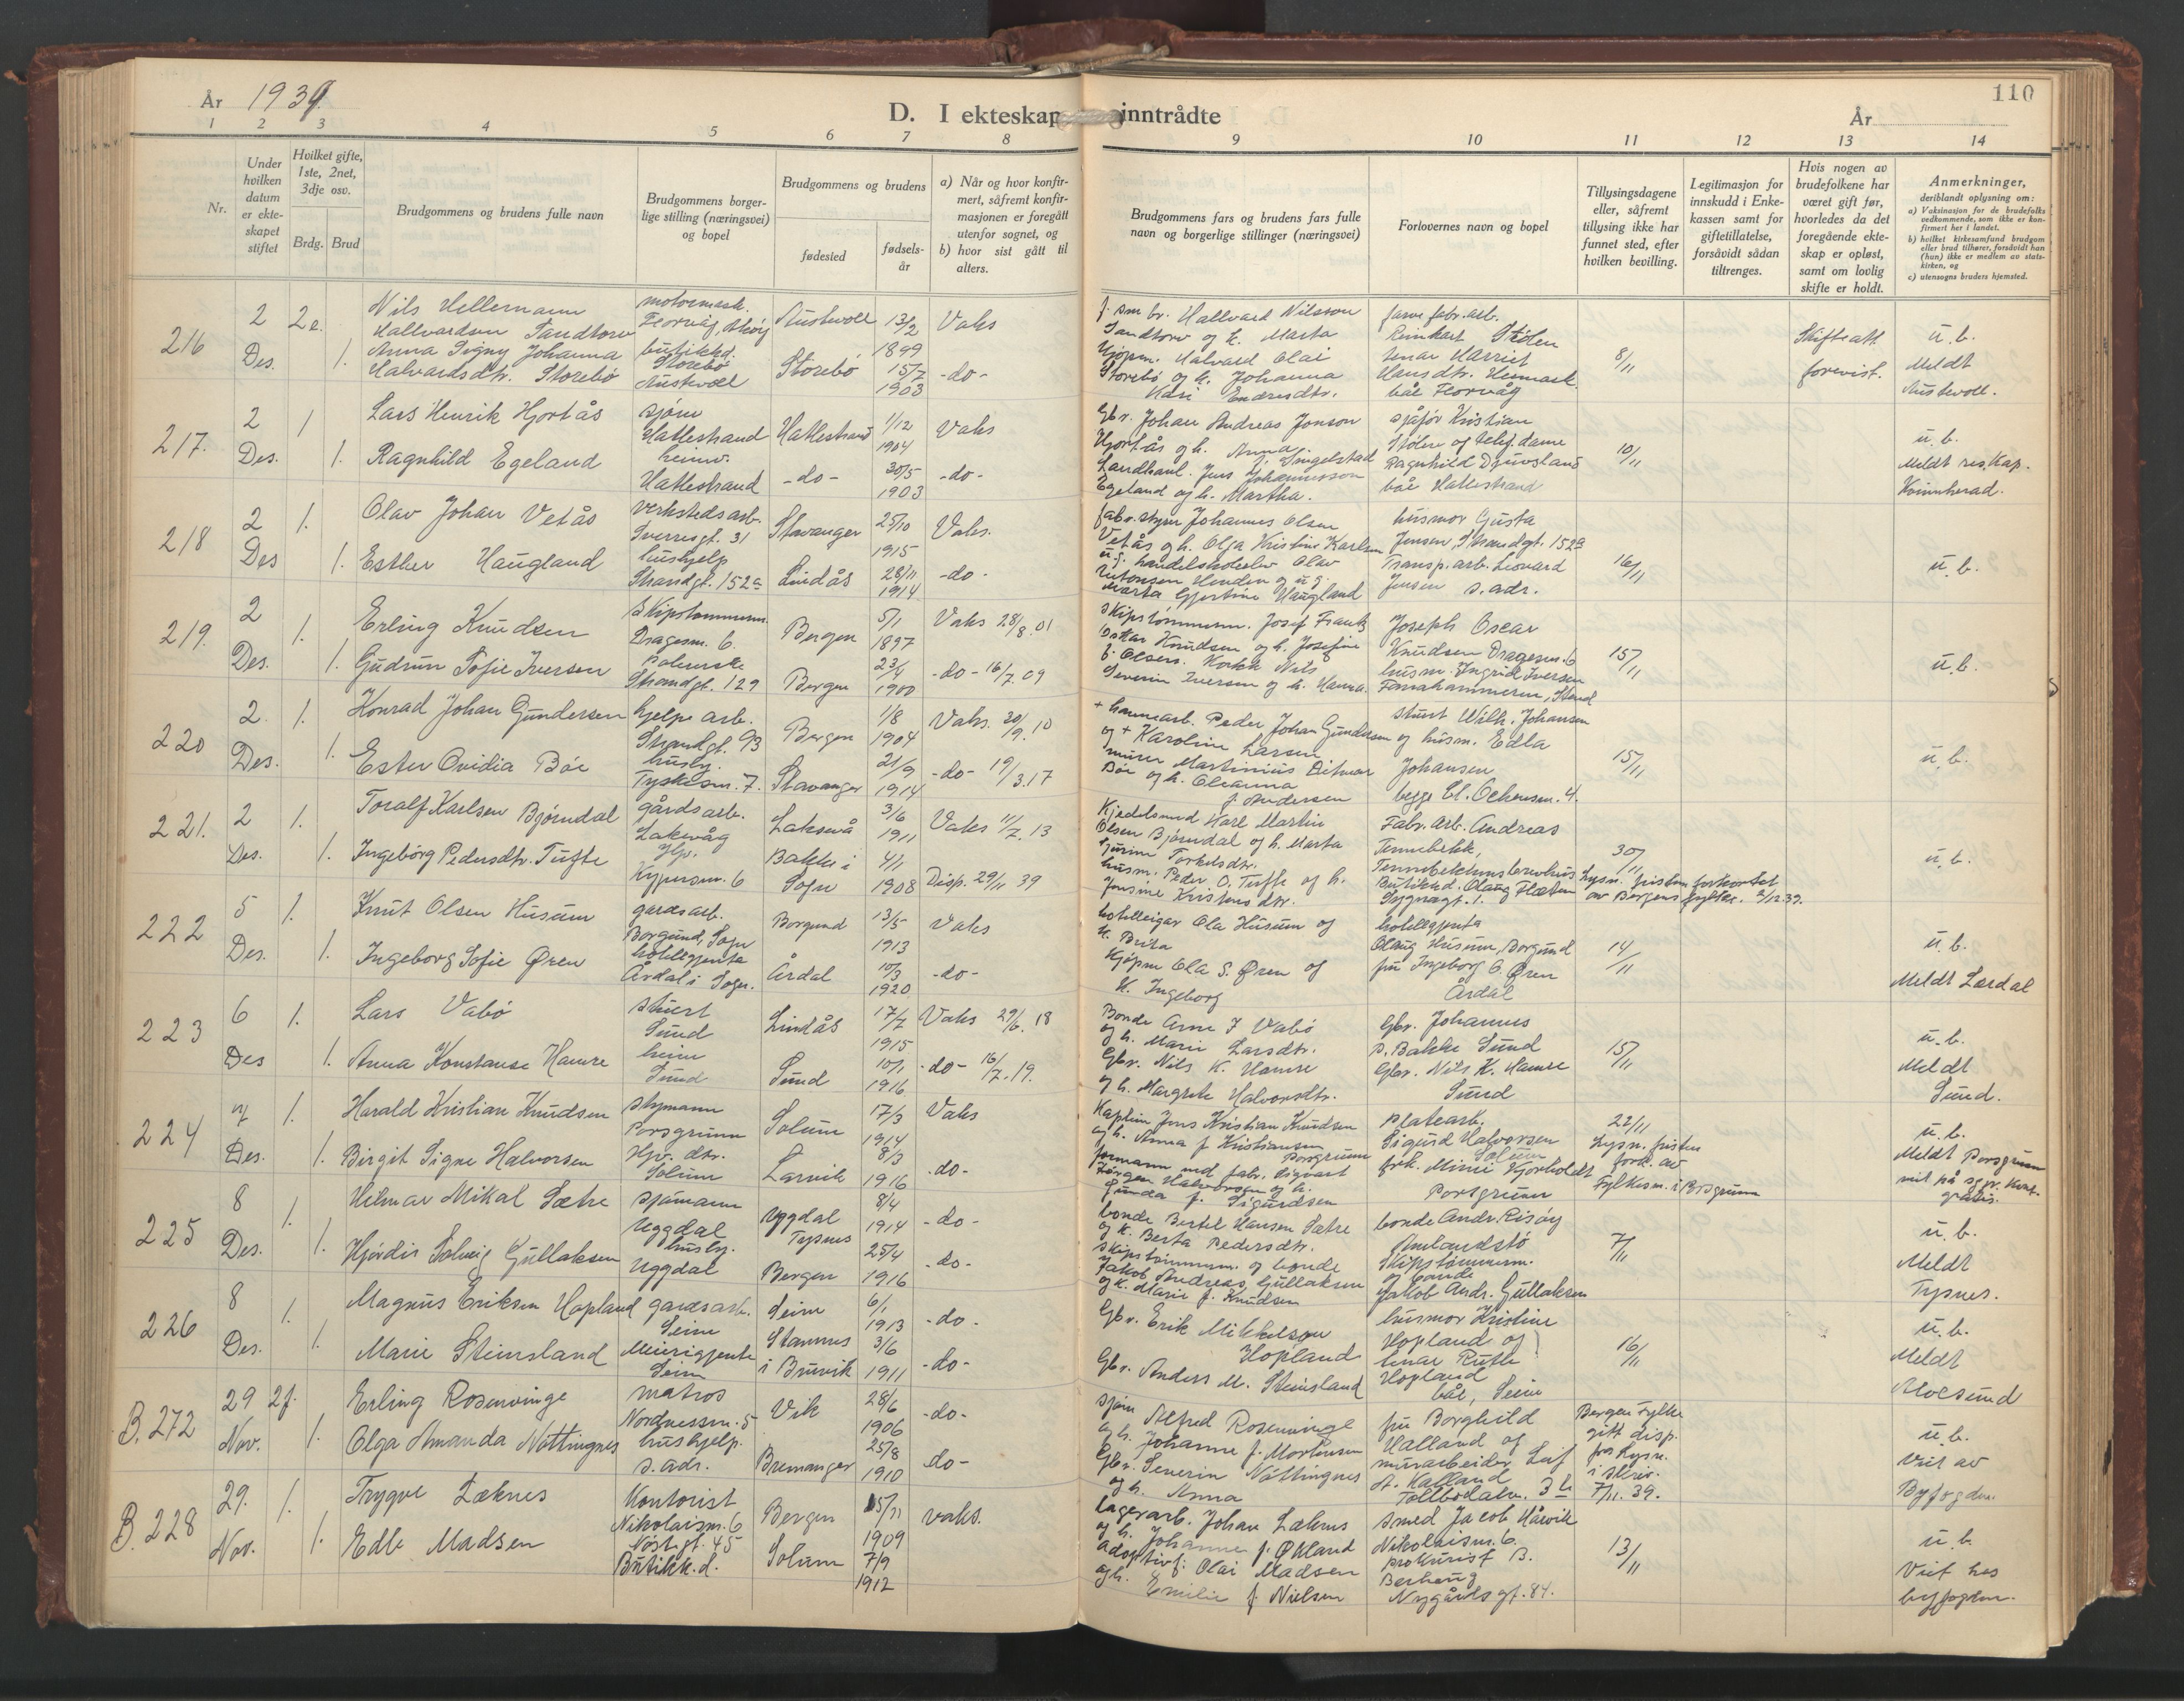 År 1939.
D. I ekteskap inntrådte
110
År
1 2 3 4 5 6 7 8 9 10 11 12 13 14
Nr.
Under hvilken datum er ekteskapet stiftet
Hvilket gifte, 1ste, 2net, 3dje osv.
Brdg. Brud
Brudgommens og brudens fulle navn
Brudgommens borgerlige stilling (næringsvei) og bopel
Brudgommens og brudens
fødested
fødselsår
a) Når og hvor konfirmert, såfremt konfirmasjonen er foregått utenfor sognet, og
b) hvor sist gått til alters.
Brudgommens fars og brudens fars fulle navn og borgerlige stillinger (næringsvei)
Forlovernes navn og bopel
Tillysingsdagene eller, såfremt tillysing ikke har funnet sted, efter hvilken bevilling.
Legitimasjon for innskudd i Enkekassen samt for giftetillatelse, forsåvidt sådan tiltrenges.
Hvis nogen av brudefolkene har været gift før, hvorledes da det foregående ekteskap er opløst, samt om lovlig skifte er holdt.
Anmerkninger,
deriblandt oplysning om:
a) Vaksinasjon for de brudefolks vedkommende, som ikke er konfirmert her i landet.
b) hvilket kirkesamfund brudgom eller brud tilhører, forsåvidt han (hun) ikke er medlem av statskirken, og
c) utensogns bruders hjemsted.
216
2 Des.
2e. 1.
Nils Hellemann
Hallvardsen Sandtorv
Anna Signy Johanna
Halvardsdtr. Storebø
motormask.
Florvåg, Askøy
butikkd.
Storebø
Austevoll
Austevoll
Storebø
13/2 1899
15/7 1903
Vaks
-do-
Hallvard Nilsson
Sandtorv og h. Marta
Kjøpm. Halvard Olai
Storebø og h. Johanna
Kari Endresdtr.
farve fabr. arb.
Reinhart Stølen
Harriet
Hansdtr.
båe Florvåg
8/11
Skifteatt.
forevist.
u.b.
Meldt
Austevoll.
217.
2 Des.
1 1.
Lars Henrik Hjortås
Ragnhild Egeland
sjøm
Hatlestrand
heimv.
Hatlestrand
Hatlestrand
-do-
1/12 1904
30/5 1903
Vaks
-do-
Gbr. Johan Andreas Jonson
Hjortås og h. Anna
f. Engelstad
Landhanl. Jens Johannesson
Egeland og h. Martha.
sjåfør Kristian
Stølen og telef. dame
Ragnhild Djuvsland
båe Hatlestrand
10/11
u.b.
Meldt res. Kap.
Kvinnherad.
218
2 Des
1. 1.
Olav Johan Vetås
Esther Haugland
verkstedsarb.
Sverresgt. 31
hushjelp
Strandgt. 152a
Stavanger
Lindås
25/10 1915
28/11 1914
Vaks.
-do-
fabr. styrer Johannes Olsen
Vetås og h. Olga Kristine Karlsen
u.g. Olav
Antonsen og u.g.
Marta Gjertine Haugland
husmor Gusta
Jensen, Strandgt. 152a
Transp. arb. Leonard
Jensen s. adr.
16/11
u.b.
219.
2 Des.
1. 1.
Erling Knudsen
Gudrun Sofie Iversen
Skipstømmerm.
Dragesm. 6.
Strandgt. 129
Bergen
Bergen
5/1 1897
23/4 1900
Vaks 28/8.01
-do- 16/7.09
Skipstømmerm. Josef Frantz
Oskar Knudsen og h. Josefine
f. Olsen. Kokk Nils
Severin Iversen og h. Hanna.
Joseph Oscar
Knudsen Dragesm. 6
husm. Ingrid Iversen
Fanahammeren, Stend
15/11
u.b.
220
2. Des.
1. 1.
Konrad Johan Gundersen
Ester Ovidia Bøe
hjelpe arb.
Strandgt. 93
husbg.
Tyskesm. 7.
Bergen
Stavanger
1/8 1904
21/9 1914
Vaks. 30/9.10
-do- 19/3.17
+ havnearb. Peder Johan Gundersen
og + Karoline Larsen
murer Martinius Ditmar
Bøe og h. Oleanna
f. Andersen
stuert Wilh. Johansen
og husm. Edla
Johansen
begge Cl. Ockensm. 4.
15/11
u.b.
221.
2 Des.
1. 1.
Toralf Karlsen Bjørndal
Ingebørg Pedersdtr. Tufte
gårdsarb.
Laksevåg
Hp.
Kypersm. 6
Laksevå
Bakke i
Sogn
3/6 1911
4/11 1908
Vaks 11/7.13
Disp. 29/11 39
Kjedelsmed Karl Martin
Olsen Bjørndal og h. Marta
Gurine Torkelsdtr.
husm. Peder O. Tufte og h.
Jensine Kristensdtr.
Fabr. arb. Andreas
Tennebekk,
Butikkd. Olaug Flæten
30/11
Lysn. fristen forkortet
av Bergens fylke. 2/12.39.
u.b.
222
5 Des.
1. 1.
Knut Olsen Husum
Ingeborg Sofie Øren
gardsarb.
Borgund, Sogn
hotellgjenta
Årdal i Sogn.
Borgund
Årdal
13/5 1913
10/3 1920
Vaks
-do-
hotelleigar Ola Husum og
k. Brita
Kjøpm Ola S. Øren og
k. Ingeborg
hotellgjenta
Olaug Husum, Borgund
fru Ingeborg O. Øren
Årdal
14/11
u.b.
Meldt Lærdal
223
6 Des
1. 1.
Lars Vabø
Anna Konstanse Hamre
stuert
Sund
heim
Sund
Lindås
Sund
17/7 1915
10/1 1916
Vaks 29/6.18
-do- 16/7.19.
Bonde Arne J Vabø
og h. Marie Larsdtr.
Gbr. Nils K. Hamre
og h. Margrete Halvorsdtr.
Gbr. Johannes
P. Bakke Sund
Gbr. Nils K. Hamre
Sund
15/11
u.b.
Meldt
Sund.
224
7 Des.
1. 1.
Harald Kristian Knudsen
Birgit Signe Halvorsen
styrmann
Porsgrunn
Hjv. dtr.
Solum
Solum
Larvik
17/3 1914
8/3 1916
Vaks
-do-
Kaptein Jens Kristian Knudsen
og h. Anna f. Kristiansen
Porsgrunn
formann ved fabr. Sigvart
Jørgen Halvorsen og h.
Gunda f. Sigurdsen
platearb.
Sigurd Halvorsen
Solum
frk. Mimi Kjorholdt
Porsgrunn
22/11
Lysn. fristen
fork. av
Fylkesm. i Porsgrunn
u.b.
Meldt Porsgrunn
gratis.
225
8 Des.
1. 1.
Hilmar Mikal Sætre
Hjørdis Solveig Gullaksen
sjømann
Uggdal
husbg.
Uggdal
Uggdal
Tysnes
Bergen
8/4 1914
25/4 1916
-do-
-do-
bonde Bertel Hansen Sætre
og k. Berta Pedersdtr.
skipstømmerm. og bonde
Jakob Andreas Gullaksen
og k. Marie f. Knudsen
bonde Andr. Risøy
Amlandstø
skipstømmerm.
og bonde
Jakob Andr. Gullaksen
7/11
u.b.
Meldt
Tysnes.
226
8 Des.
1. 1.
Magnus Eriksen Hopland
Marie Steinsland
gardsarb.
Seim
Meierigjente
Seim
Seim
Stamnes
i Bruvik
6/1 1913
3/6 1911
-do-
-do-
Gbr. Erik Mikkelson
Hopland
Gbr. Anders M. Steinsland
husmor Kristine
Hopland og
Ruth
Hopland
båe, Seim
16/11
u.b.
Meldt
Alversund
B. 272
29 Nov.
2f. 1.
Erling Rosenvinge
Olga Amanda Nøttingnes
matros
Nordnessm. 5
hushjelp.
s. adr.
Vik
Bremanger
28/6 1906
25/8 1910
-do-
-do-
sjøm Alfred Rosenvinge
og h. Johanne f. Mortensen
Gbr. Severin Nøttingnes
og h. Anna
fru Borghild
Halland og
murarbeider Leif
A. Halland
Tollbodalm. 3b
Bergen Fylke
gitt disp.
fra Lysn.
i skriv.
7/11. 39.
u.b.
Viet av
Byfogden.
B. 228
29. Nov.
1. 1.
Trygve Leknes
Edle Madsen
Kontorist
Nikolaism. 6
Nøstgt. 45
Butikk.d.
Bergen
Solum
15/11 1909
7/9 1912
vaks.
lagerarb. Johan Leknes
og h. Johanne f. Økland
adoptivf: Olai Madsen
og h. Emilie f. Nielsen
smed Jacob Håvik
Nikolaism. 6.
prokurist B.
Berhaug
Nygårdsgt. 84.
13/11
u.b.
Viet hos
byfogden.